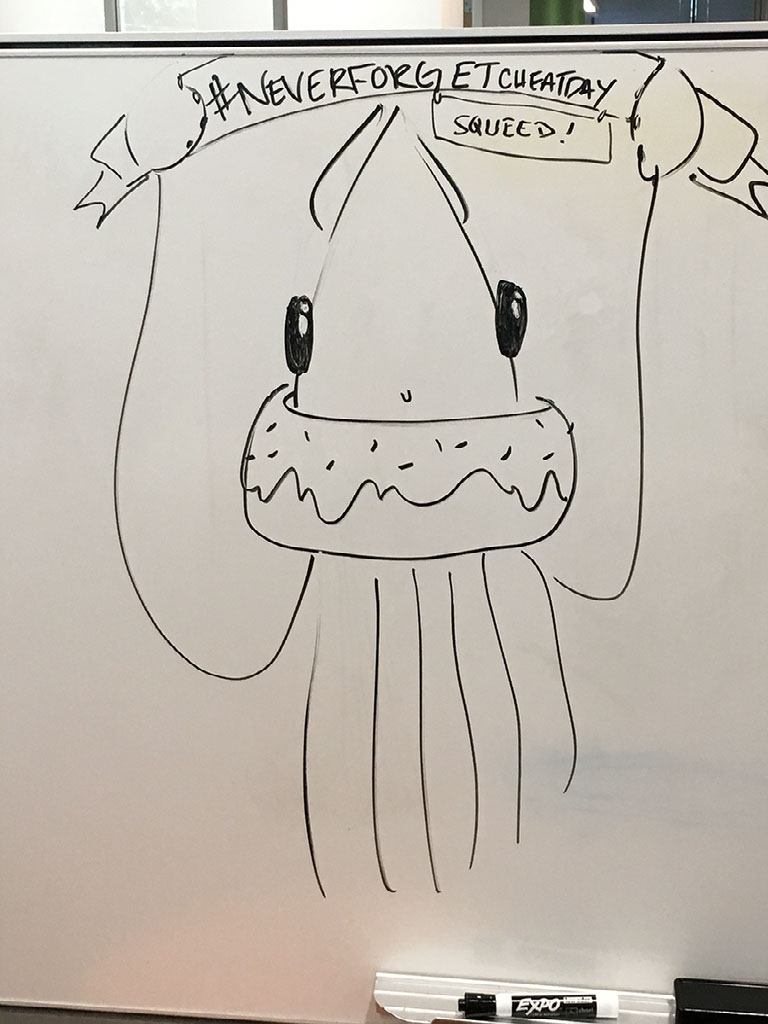 #NEVERFORGETCHEATDAY
SQUEED!
EXPO